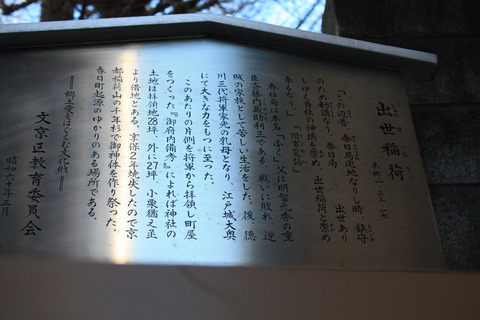 出世稲荷
本郷一―三三―一七
「この辺昔、春日局拝地なりし時、鎮守
のため勧請なり、春日局……出世あり
しゆえ当社の神を崇めて出世稲荷と崇め
来るなり」
春日局は本名"ふく"、父は明智光秀の重
臣斎藤内蔵助利三である。戦いに敗れ、逆
賊の家族として苦しい生活をした。後、徳
川三代将軍家光の乳母となり、江戸城大奥
にて大きな力をもつに至った。
このあたりの片側を将軍から拝領し町屋
をつくった『御府内備考』によれば神社の
土地は拝領地28坪、外に27坪、小栗猶之丞
より借地とある。享保2年焼失したので京
都稲荷山の千年杉で御神体を作り祭った。
春日町起源のゆかりのある場所である。
―郷土愛をはぐくむ文化財―
文京区教育委員会
昭和六十年三月